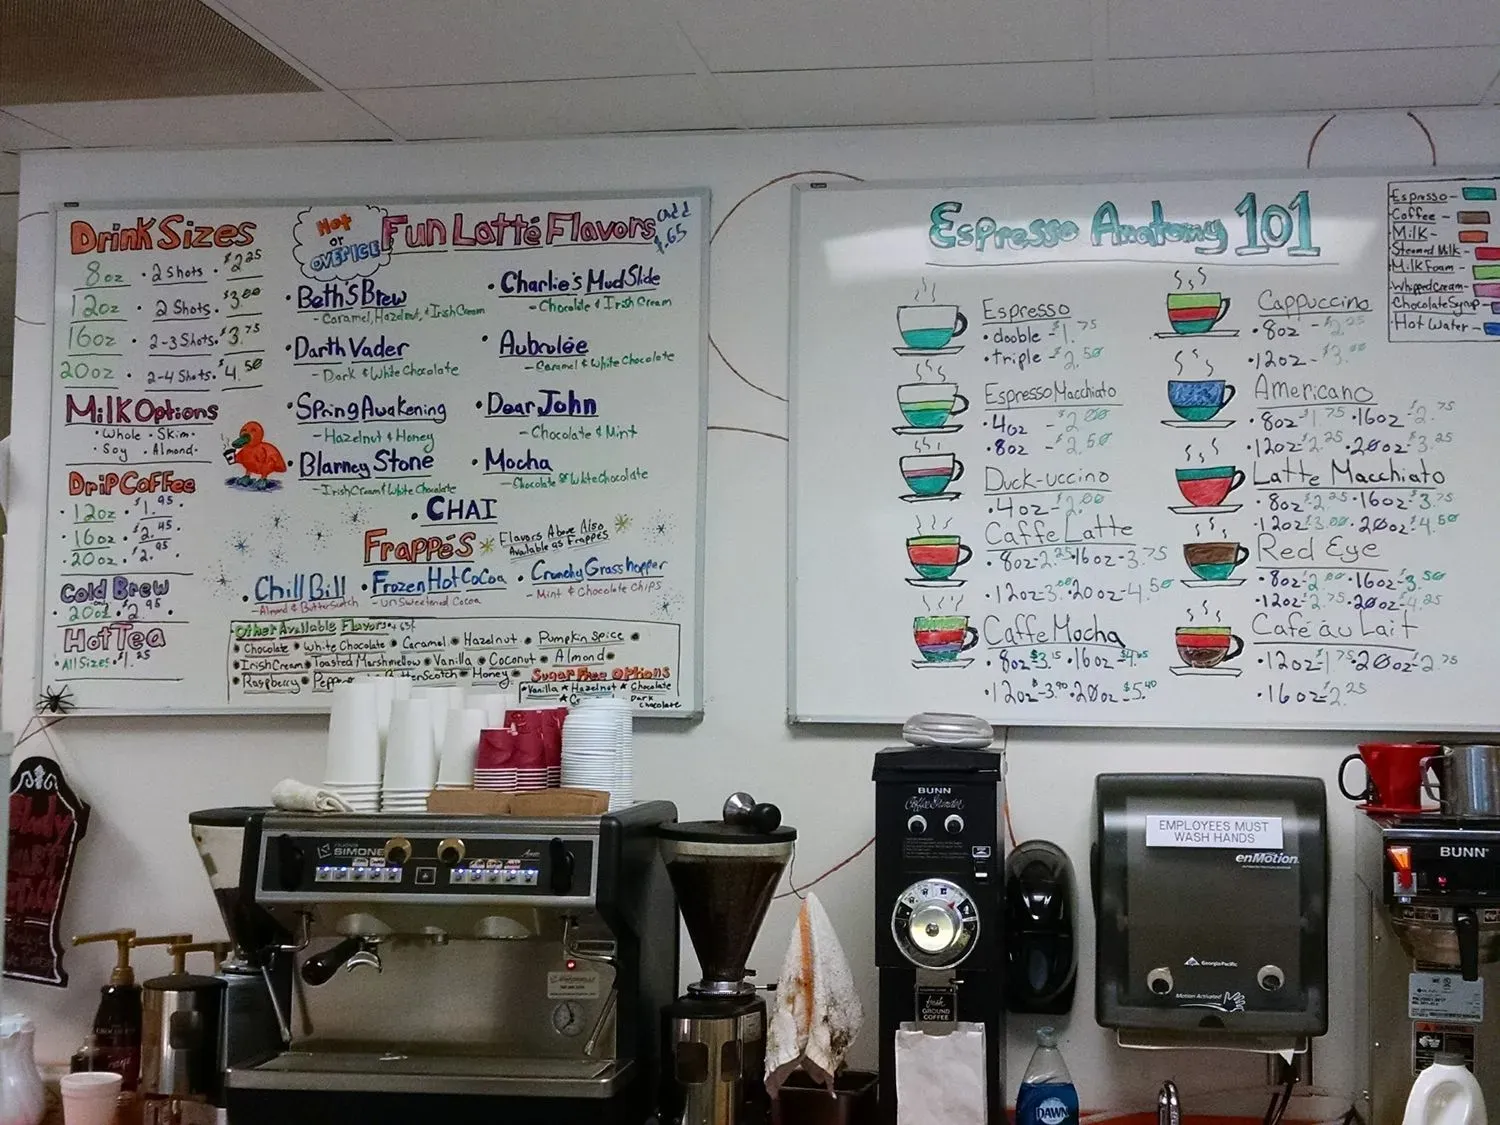 Drink Sizes
8oz • 2 Shots • $2.25
12oz • 2 Shots • $3.00
16oz • 2-3 Shots • $3.75
20oz • 2-4 Shots • $4.50
Milk Options
• Whole • Skim •
• Soy • Almond •
Drip Coffee
• 12oz • $1.95
• 16oz • $2.45
• 20oz • $2.95
Cold Brew
• 20oz • $2.95 •
Hot Tea
• All Sizes • $1.25
Hot
or
OVER ICE
Fun Latté Flavors
add
$.65
• Beth's Brew
- Caramel, Hazelnut, & Irish Cream
• Darth Vader
- Dark & White Chocolate
• Spring Awakening
- Hazelnut & Honey
• Blarney Stone
- Irish Cream & White Chocolate
• Charlie's Mud Slide
- Chocolate & Irish Cream
• Aubrulée
- Caramel & White Chocolate
• Dear John
- Chocolate & Mint
• Mocha
- Chocolate or White Chocolate
• CHAI
Frappés
Flavors Above Also
Available as Frappés
• Chill Bill
- Almond & Butterscotch
• Frozen Hot Cocoa
- unSweetened Cocoa
• Crunchy Grasshopper
- Mint & Chocolate Chips
Other Available Flavors
• Chocolate • White Chocolate • Caramel • Hazelnut • Pumpkin Spice •
• Irish Cream • Toasted Marshmellow • Vanilla • Coconut • Almond •
• Raspberry • Butterscotch • Honey •
Sugar Free Options
• Vanilla ★ Hazelnut ★ Chocolate
Dark
chocolate
Espresso Anatomy 101
Espresso
• double - $1.75
• triple - $2.50
Espresso Macchiato
• 4oz - $2.00
• 8oz - $2.50
Duck-uccino
• 4oz - $2.00
Caffe Latte
• 8oz - 2.25 • 16oz - 3.75
• 12oz - 3.00 • 20oz - 4.50
Caffe Mocha
• 8oz $3.15 • 16oz $4.65
• 12oz - $3.90 • 20oz $5.40
Cappuccino
• 8oz - $2.25
• 12oz - $3.00
Americano
• 8oz $1.75 • 16oz - $2.75
• 12oz $2.25 • 20oz $3.25
Latte Macchiato
• 8oz $2.25 • 16oz $3.75
• 12oz $3.00 • 20oz $4.50
Red Eye
• 8oz $2.00 • 16oz $3.50
• 12oz $2.75 • 20oz $4.25
Café au Lait
• 12oz $1.75 • 20oz $2.75
• 16oz $2.25
Espresso -
Coffee -
Milk -
Steamed Milk -
Milk Foam -
Whipped Cream -
Chocolate Syrup -
Hot Water -
SIMONE
BUNN
Coffee Grinder
fresh
GROUND
COFFEE
EMPLOYEES MUST
WASH HANDS
enMotion
Georgia-Pacific
Motion Activated
BUNN
DAWN